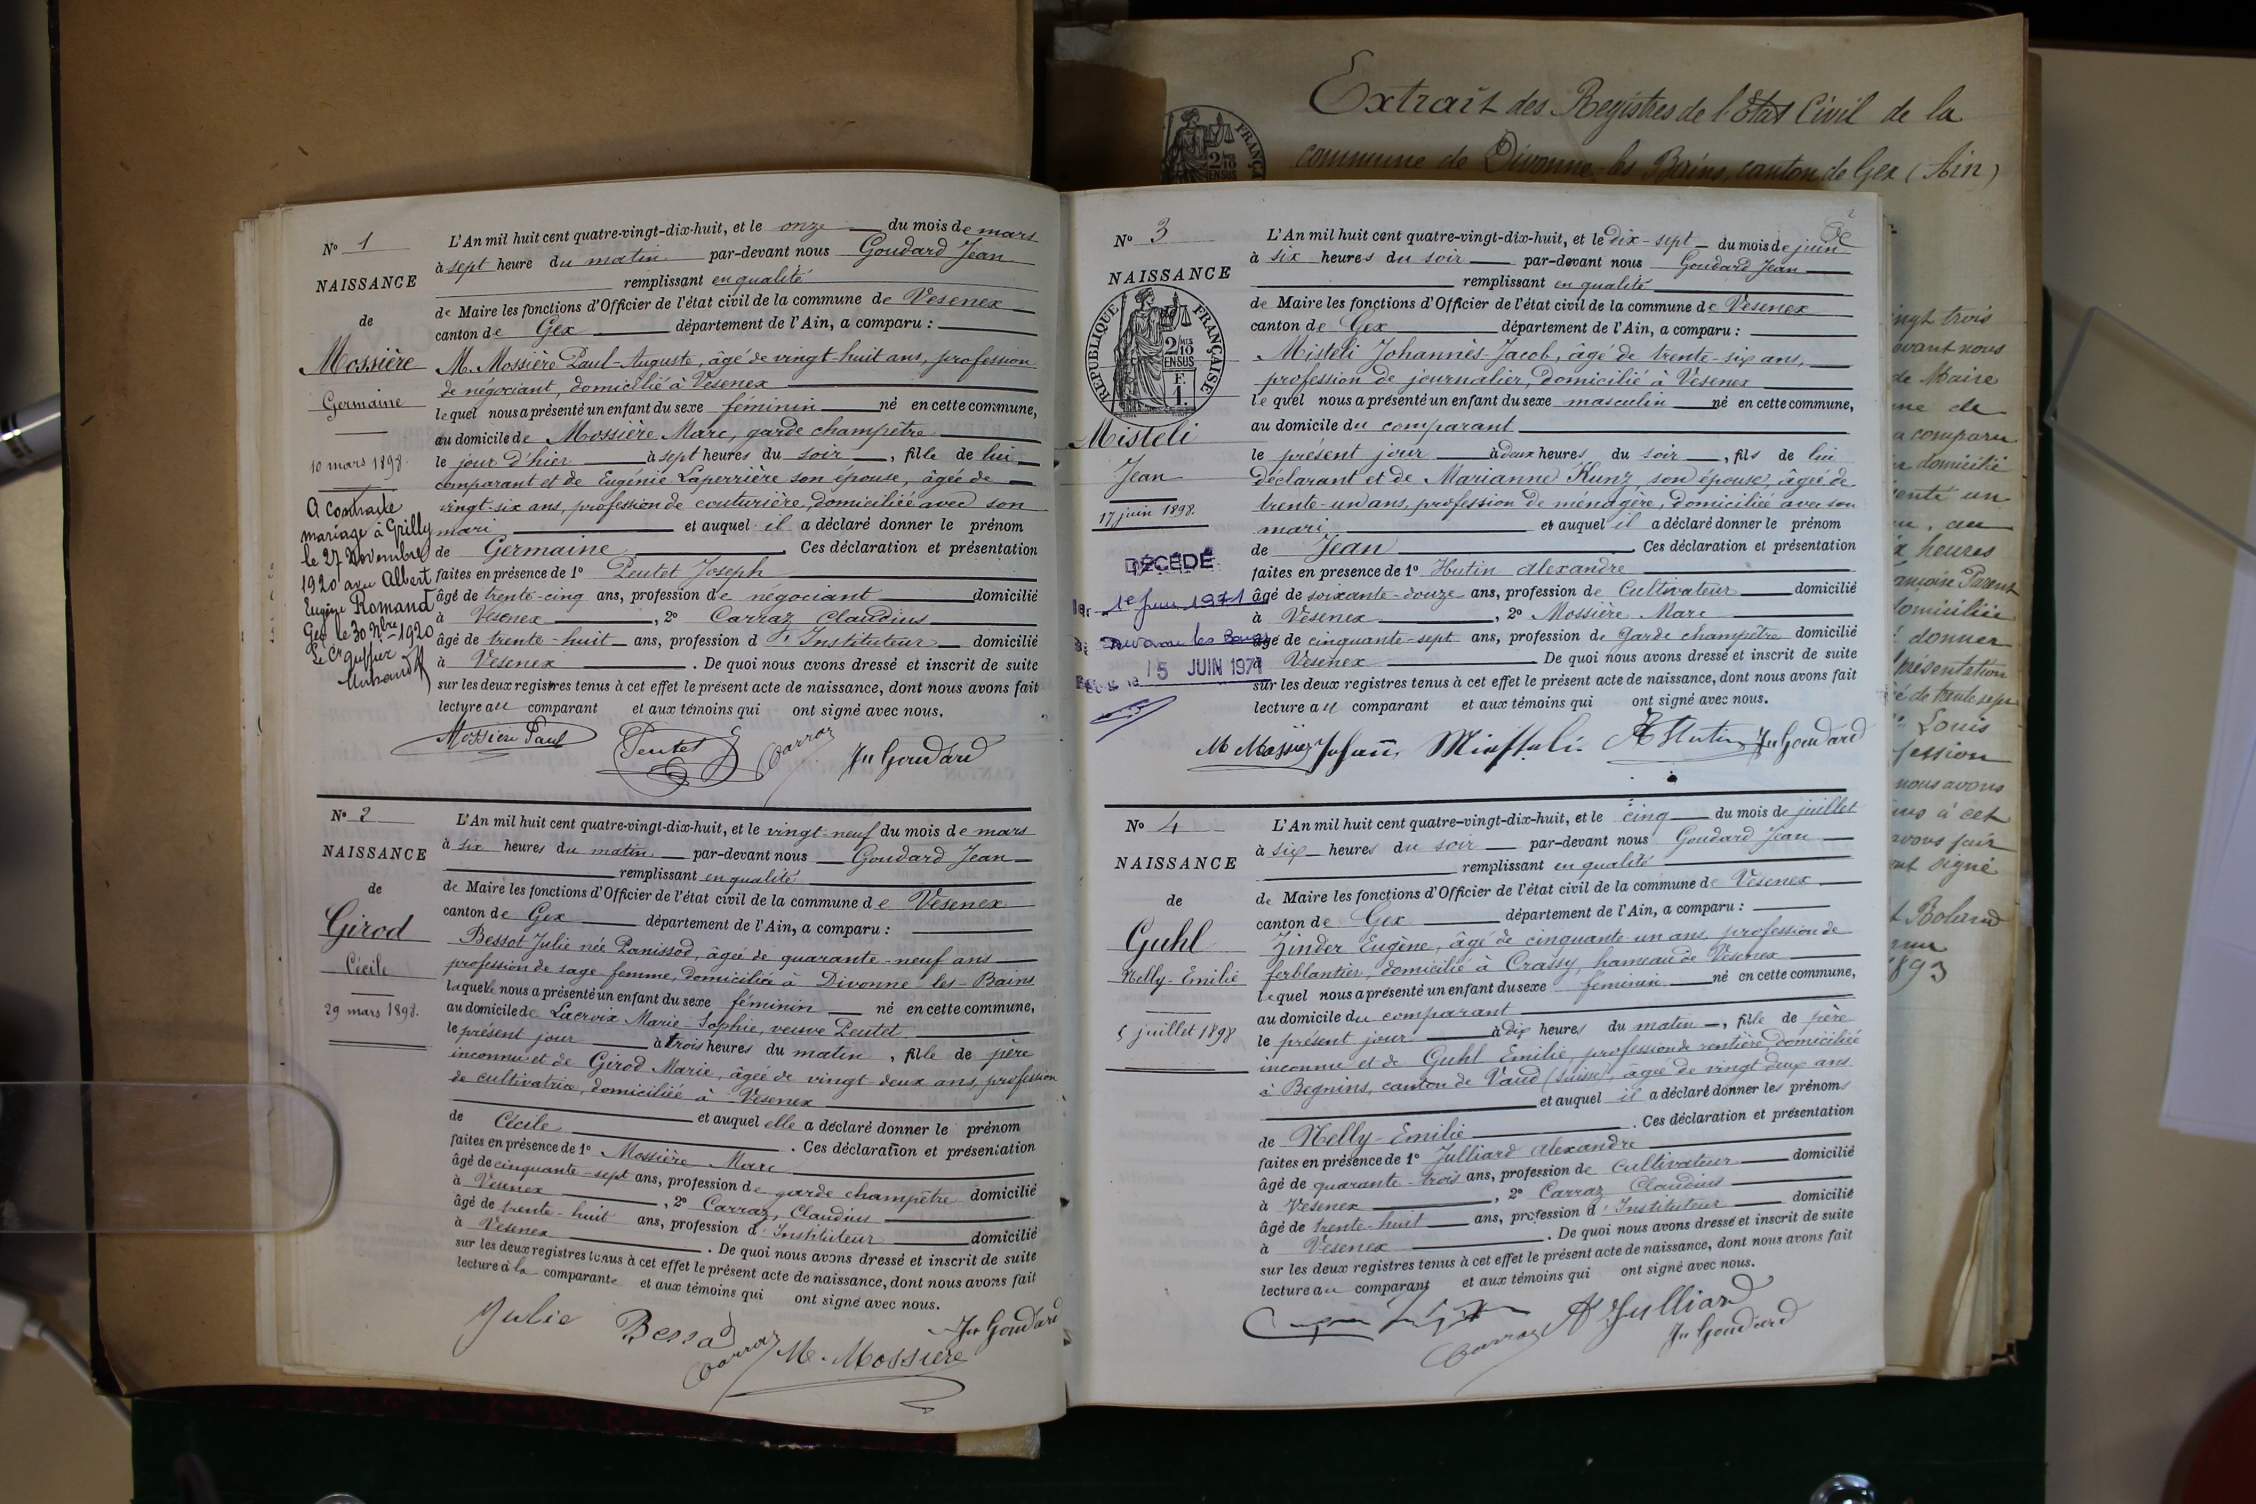 Extrait des Registres de l'Etat Civil de la
commune de Divonne-les-Bains, canton de Gex (Ain)
Nº 1
NAISSANCE
de
Mossière
Germaine
10 mars 1898.
A contracté
mariage à Grilly
le 27 Novembre
1920 avec Albert
Eugène Romand
Gex le 30 9bre 1920
Le Greffier
L'An mil huit cent quatre-vingt-dix-huit, et le onze du mois de mars
à sept heure du matin par-devant nous Goudard Jean
remplissant en qualité
de Maire les fonctions d'Officier de l'état civil de la commune de Vesenex
canton de Gex département de l'Ain, a comparu :
M. Mossière Paul-Auguste, âgé de vingt-huit ans, profession
de négociant, domicilié à Vesenex
lequel nous a présenté un enfant du sexe féminin né en cette commune,
au domicile de Mossière Marc, garde champêtre
le jour d'hier à sept heures du soir, fille de lui
comparant et de Eugénie Laperrière son épouse, âgée de
vingt-six ans, profession de couturière, domiciliée avec son
mari et auquel il a déclaré donner le prénom
de Germaine. Ces déclaration et présentation
faites en présence de 1º Peutet Joseph
âgé de trente-cinq ans, profession de négociant domicilié
à Vesenex, 2º Carraz Claudius
âgé de trente-huit ans, profession d'Instituteur domicilié
à Vesenex. De quoi nous avons dressé et inscrit de suite
sur les deux registres tenus à cet effet le présent acte de naissance, dont nous avons fait
lecture au comparant et aux témoins qui ont signé avec nous.
Mossière Paul Peutet J Carraz Jn Goudard
Nº 2
NAISSANCE
de
Girod
Cécile
29 mars 1898.
L'An mil huit cent quatre-vingt-dix-huit, et le vingt-neuf du mois de mars
à six heures du matin par-devant nous Goudard Jean
remplissant en qualité
de Maire les fonctions d'Officier de l'état civil de la commune de Vesenex
canton de Gex département de l'Ain, a comparu :
Bessot Julie née Panissod, âgée de quarante-neuf ans
profession de sage femme, domiciliée à Divonne-les-Bains
laquelle nous a présenté un enfant du sexe féminin né en cette commune,
au domicile de Lacroix Marie-Sophie, veuve Peutet
le présent jour à trois heures du matin, fille de père
inconnu et de Girod Marie, âgée de vingt-deux ans, profession
de cultivatrice, domiciliée à Vesenex
et auquel elle a déclaré donner le prénom
de Cécile. Ces déclaration et présentation
faites en présence de 1º Mossière Marc
âgé de cinquante-sept ans, profession de garde champêtre domicilié
à Vesenex, 2º Carraz, Claudius
âgé de trente-huit ans, profession d'Instituteur domicilié
à Vesenex. De quoi nous avons dressé et inscrit de suite
sur les deux registres tenus à cet effet le présent acte de naissance, dont nous avons fait
lecture à la comparante et aux témoins qui ont signé avec nous.
Julie Bessod Carraz M. Mossière Jn Goudard
Nº 3
NAISSANCE
REPUBLIQUE FRANÇAISE
2/10 EN SUS
F. 1.
Misteli
Jean
17 juin 1898.
DÉCÉDÉ
1er Juin 1971
Divonne les Bains
15 JUIN 1971
L'An mil huit cent quatre-vingt-dix-huit, et le dix-sept du mois de juin
à six heures du soir par-devant nous Goudard Jean
remplissant en qualité
de Maire les fonctions d'Officier de l'état civil de la commune de Vesenex
canton de Gex département de l'Ain, a comparu :
Misteli Johannès-Jacob, âgé de trente-six ans,
profession de journalier, domicilié à Vesenex
lequel nous a présenté un enfant du sexe masculin né en cette commune,
au domicile du comparant
le présent jour à deux heures du soir, fils de lui
déclarant et de Marianne Kunz, son épouse, âgée de
trente-un ans, profession de ménagère, domiciliée avec son
mari et auquel il a déclaré donner le prénom
de Jean. Ces déclaration et présentation
faites en présence de 1º Hutin Alexandre
âgé de soixante-douze ans, profession de Cultivateur domicilié
à Vesenex, 2º Mossière Marc
âgé de cinquante-sept ans, profession de garde champêtre domicilié
à Vesenex. De quoi nous avons dressé et inscrit de suite
sur les deux registres tenus à cet effet le présent acte de naissance, dont nous avons fait
lecture au comparant et aux témoins qui ont signé avec nous.
M Mossière Johann Misteli A Hutin Jn Goudard
Nº 4
NAISSANCE
de
Guhl
Nelly-Emilie
5 juillet 1898
L'An mil huit cent quatre-vingt-dix-huit, et le cinq du mois de juillet
à six heures du soir par-devant nous Goudard Jean
remplissant en qualité
de Maire les fonctions d'Officier de l'état civil de la commune de Vesenex
canton de Gex département de l'Ain, a comparu :
Zinder Eugène, âgé de cinquante-un ans, profession de
ferblantier, domicilié à Crassy, hameau de Vesenex
lequel nous a présenté un enfant du sexe féminin né en cette commune,
au domicile du comparant
le présent jour à dix heures du matin, fille de père
inconnu et de Guhl Emilie, profession de rentière, domiciliée
à Begnins, canton de Vaud (Suisse), âgée de vingt-deux ans
et auquel il a déclaré donner les prénoms
de Nelly-Emilie. Ces déclaration et présentation
faites en présence de 1º Julliard Alexandre
âgé de quarante-trois ans, profession de Cultivateur domicilié
à Vesenex, 2º Carraz Claudius
âgé de trente-huit ans, profession d'Instituteur domicilié
à Vesenex. De quoi nous avons dressé et inscrit de suite
sur les deux registres tenus à cet effet le présent acte de naissance, dont nous avons fait
lecture au comparant et aux témoins qui ont signé avec nous.
Carraz A Julliard
Jn Goudard
ngt trois
evant nous
de Maire
ne de
a comparu
domicilié
enté un
au
heures
domiciliée
donner
présentation
Louis
fession
nous avons
à cet
avons fait
ont signé
Roland
1893